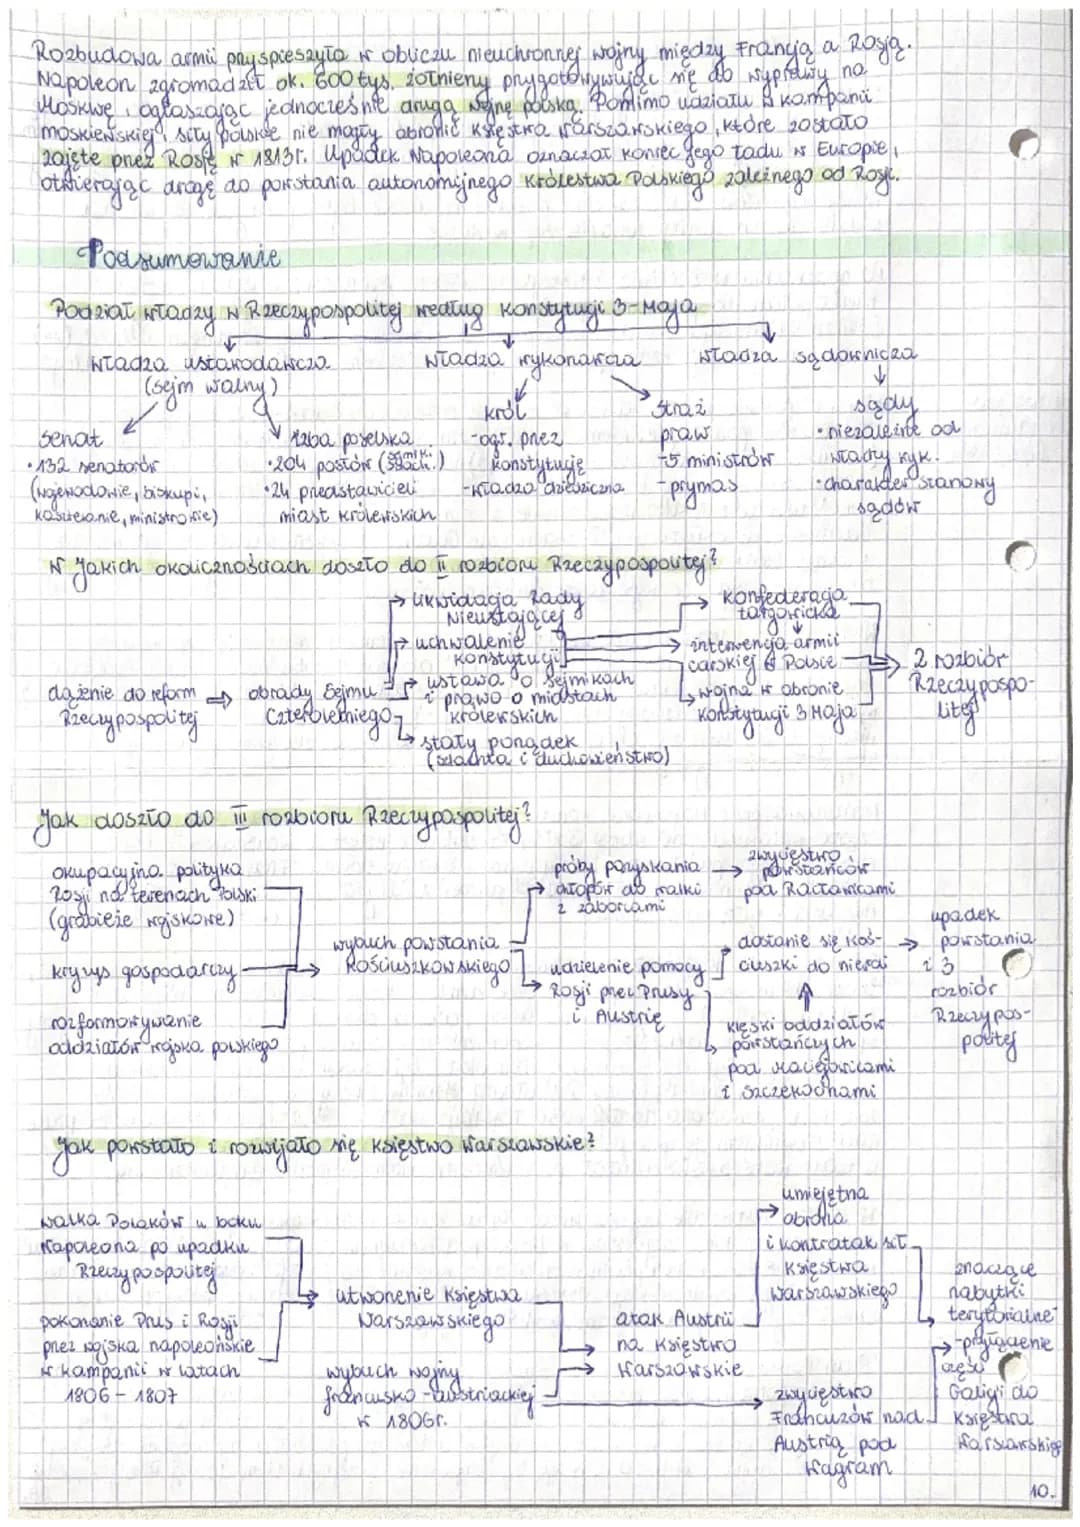 Rozbudowa armii przyspieszyła w obliczu nieuchronnej wojny między Francją a Rosją.
Napoleon zgromadził ok. 600 tys. żołnierzy przygotowywując się do wyprawy na
Moskwę, ogłaszając jednocześnie drugą wojnę polską. Pomimo udziału w kampanii
moskiewskiej, siły polskie nie mogły obronić Księstwa Warszawskiego, które zostało
zajęte przez Rosję w 1813r. Upadek Napoleona oznaczał koniec jego ładu w Europie,
otwierając drogę do powstania autonomijnego Królestwa Polskiego zależnego od Rosji.
Podsumowanie
Podział władzy w Rzeczypospolitej według Konstytucji 3-Maja
władza ustawodawcza
(sejm walny)
władza wykonawcza
władza sądownicza
senat
• 132 senatorów
(wojewodowie, biskupi,
kasztelanie, ministrowie)
izba poselska
• 204 posłów (szlach.)
• 24 przedstawicieli
miast królewskich
król
- ogr. przez
konstytucję
- władza dziedziczna
straż
praw
- 5 ministrów
- prymas
sądy
• niezależne od
władzy wyk.
• charakter stanowy
sądów
W jakich okolicznościach doszło do II rozbioru Rzeczypospolitej?
dążenie do reform
Rzeczypospolitej
obrady Sejmu
Czteroletniego
likwidacja Rady
Nieustającej
uchwalenie
konstytucji
ustawa o sejmikach
i prawo o miastach
królewskich
stały porządek
(szlachta i duchowieństwo)
konfederacja
targowicka
interwencja armii
carskiej w Polsce
wojna w obronie
konstytucji 3 Maja
2 rozbiór
Rzeczypospo-
litej
Jak doszło do III rozbioru Rzeczypospolitej?
okupacyjna polityka
Rosji na terenach Polski
(grabieże wojskowe)
kryzys gospodarczy
rozformowywanie
oddziałów wojska polskiego
wybuch powstania
Kościuszkowskiego
próby pozyskania
chłopów do walki
z zaborcami
zwycięstwo
powstańców
pod Racławicami
udzielenie pomocy
Rosji przez Prusy
i Austrię
dostanie się Koś-
ciuszki do niewoli
klęski oddziałów
powstańczych
pod Maciejowicami
i Szczekocinami
upadek
powstania
i 3
rozbiór
Rzeczypos-
politej
Jak powstało i rozwijało się Księstwo Warszawskie?
walka Polaków u boku
Napoleona po upadku
Rzeczypospolitej
pokonanie Prus i Rosji
przez wojska napoleońskie
w kampanii w latach
1806 - 1807
utworzenie Księstwa
Warszawskiego
wybuch wojny
francusko - austriackiej
w 1806r.
atak Austrii
na Księstwo
Warszawskie
umiejętna
obrona
i kontratak sił
Księstwa
Warszawskiego
zwycięstwo
Francuzów nad
Austrią pod
Wagram
znaczące
nabytki
terytorialne
- przyłączenie
części
Galicji do
Księstwa
Warszawskiego
10.